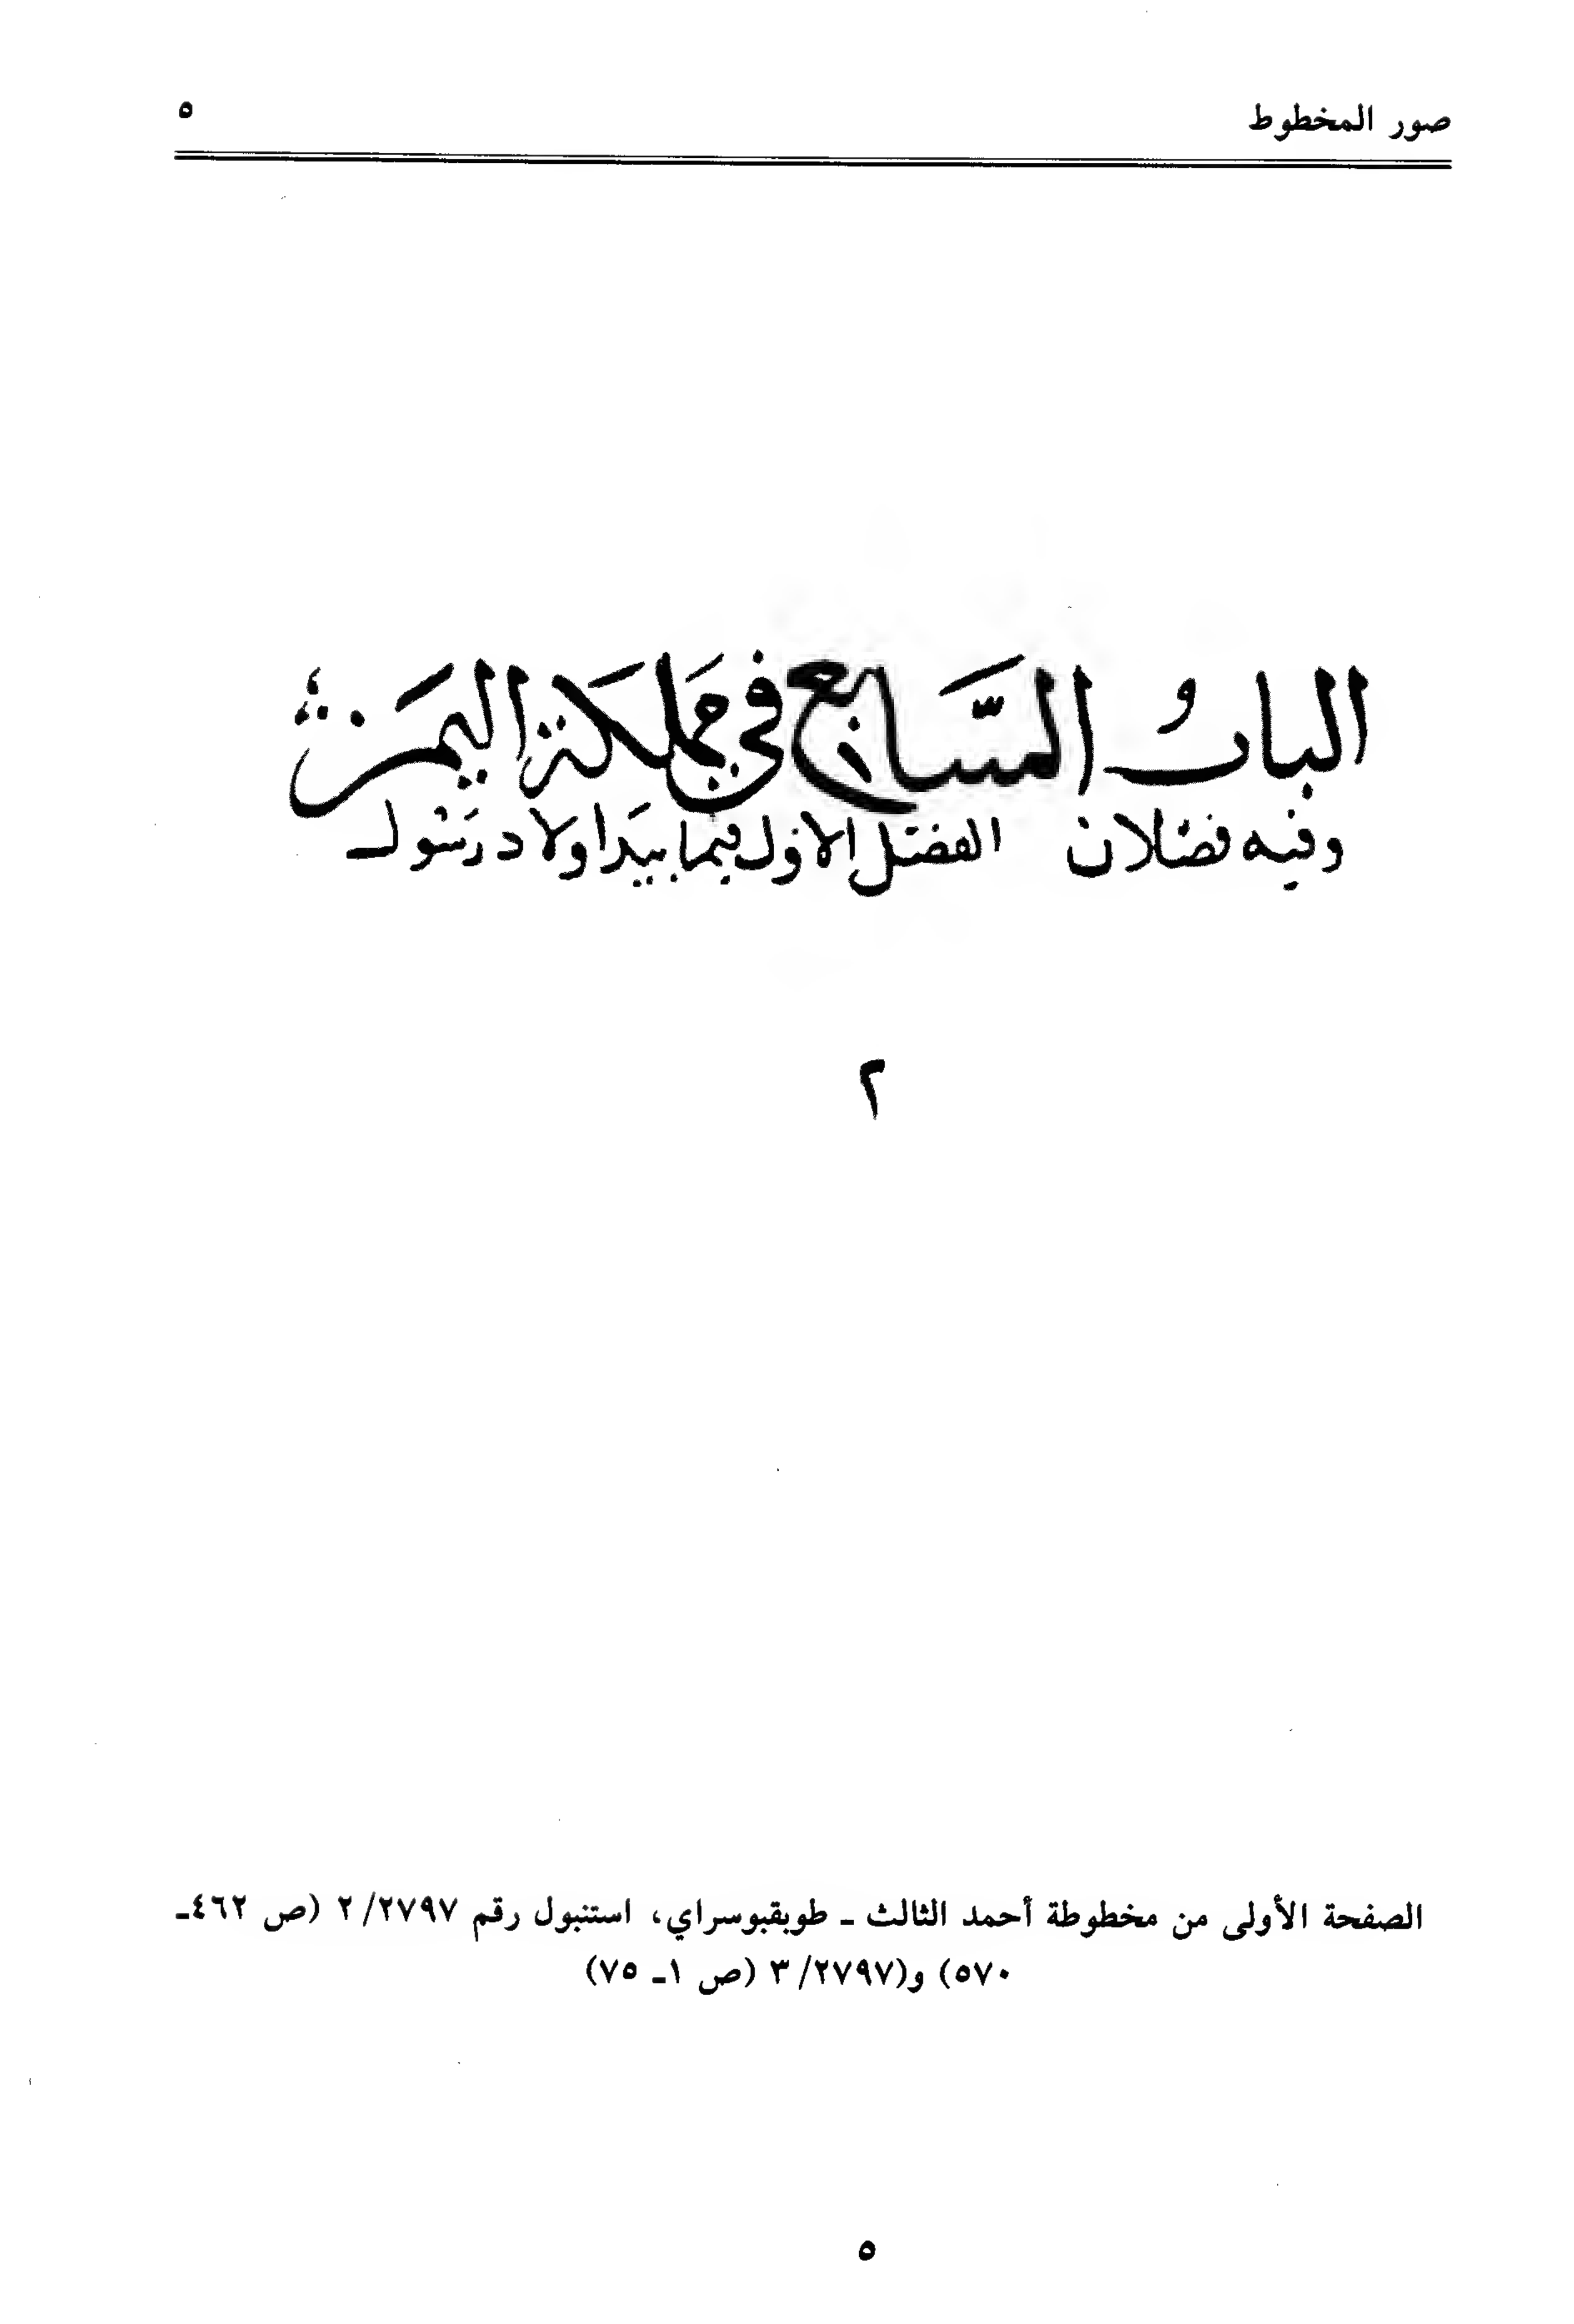 صور المخطوط
٥
الباب السابع في مملكة اليمن
وفيه فصلان الفصل الاول فيما بيد اولاد رسول
٢
الصفحة الأولى من مخطوطة أحمد الثالث ـ طوبقبوسراي، استنبول رقم ٢/٢٧٩٧ (ص ٤٦٢ـ
٥٧٠) و(٢٧٩٧/ ٣ (ص ١ـ ٧٥)
٥